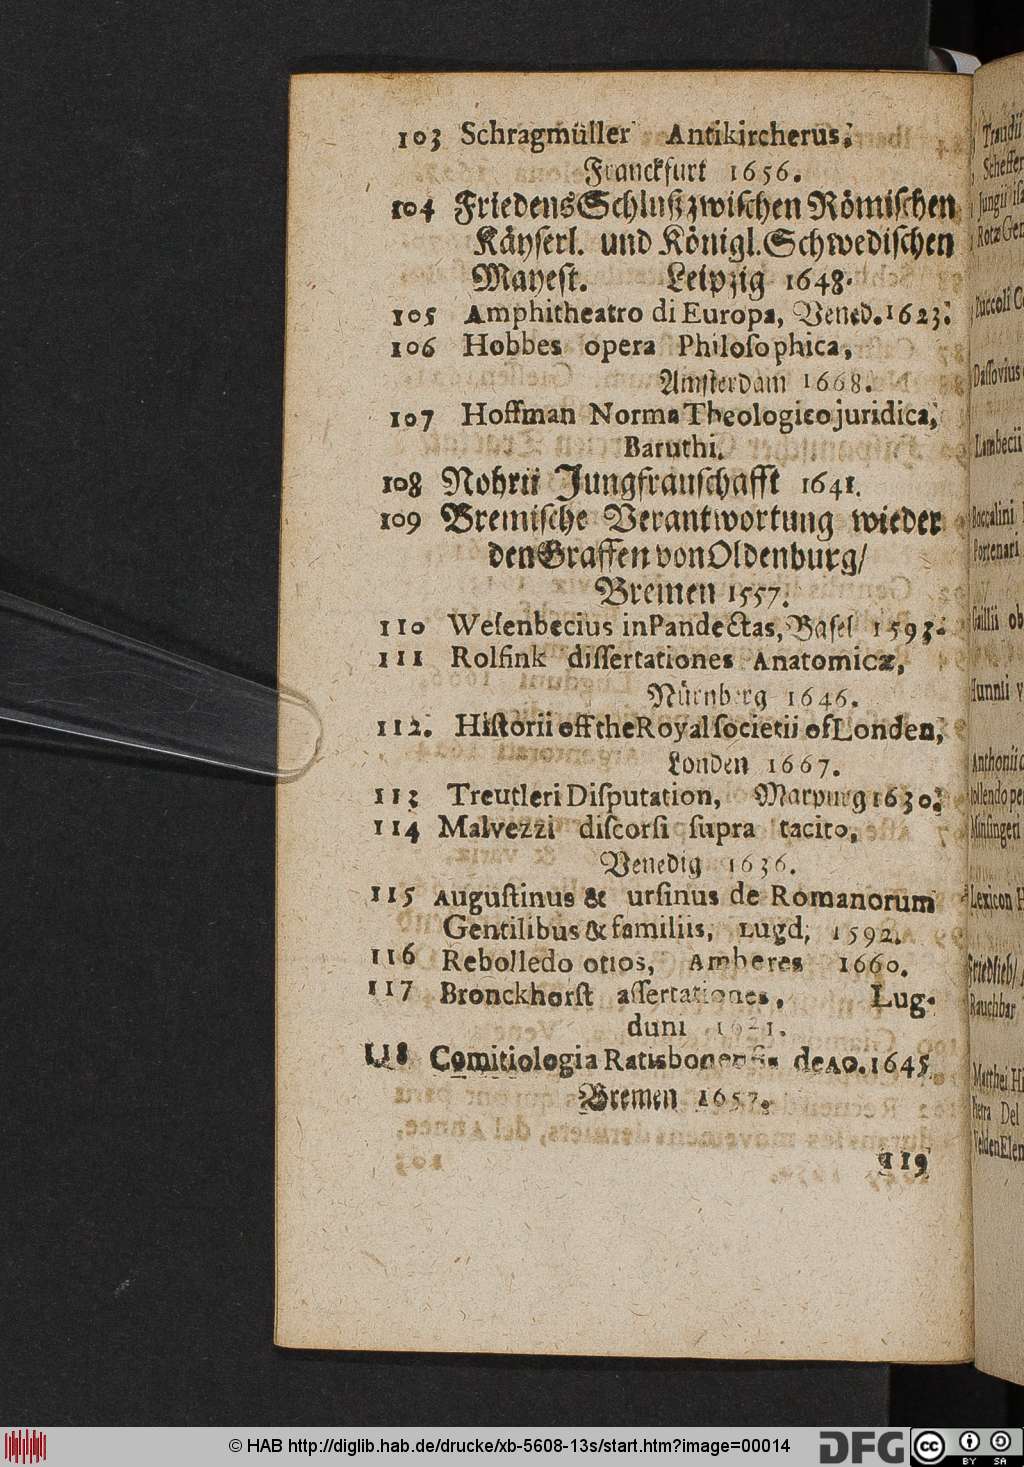 103 Schragmüller Antikircherus,
Franckfurt 1656.
104 FriedensSchluß zwischen Römischen
Käyserl. und Königl. Schwedischen
Mayest. Leipzig 1648.
105 Amphitheatro di Europa, Vened. 1623.
106 Hobbes opera Philoſophica,
Amsterdam 1668.
107 Hoffman Norma Theologico juridica,
Baruthi.
108 Nohrii Jungfrauschafft 1641.
109 Bremische Verantwortung wieder
den Graffen von Oldenburg/
Bremen 1557.
110 Weſenbecius in Pandectas, Basel 1593.
111 Rolfink diſſertationes Anatomicæ,
Nürnberg 1646.
112. Hiſtorii off the Royal ſocietii of Londen,
Londen 1667.
113 Treutleri Diſputation, Marpurg 1630.
114 Malvezzi diſcorſi ſupra tacito,
Venedig 1636.
115 Auguſtinus & urſinus de Romanorum
Gentilibus & familiis, Lugd, 1592.
116 Rebolledo otios, Amberes 1660.
117 Bronckhorſt aſſertationes, Lug-
duni
118 Comitiologia Ratisbonenſis de AO. 1645
Bremen 1657.
119
Scheffer
Jungii
Rotz
Puccoli
Daſſovius
Lambecii
Boccalini
Portenari
Gaillii ob
Hunnii
Anthonii
Lexicon H
Friedlieb/
Rauchbar
Matthei
Pietra Del
Velden Elem
© HAB http://diglib.hab.de/drucke/xb-5608-13s/start.htm?image=00014
DFG
CC
BY SA